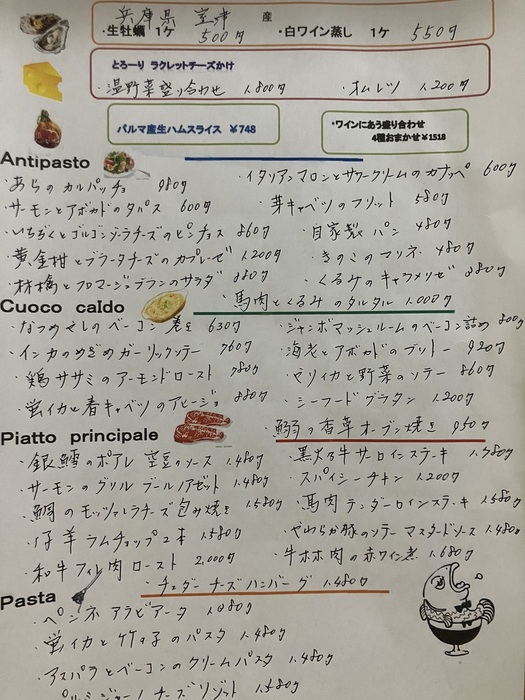 兵庫県 室津 産
・生牡蠣 1ケ 500円 ・白ワイン蒸し 1ケ 550円
とろーり ラクレットチーズかけ
・温野菜盛り合わせ 1.800円 ・オムレツ 1.200円
パルマ産生ハムスライス ¥748
・ワインにあう盛り合わせ
4種おまかせ¥1518
Antipasto
・あらのカルパッチョ 980円
・イタリアンマロンとサワークリームのカナッペ 600円
・サーモンとアボカドのタパス 600円
・芽キャベツのフリット 580円
・いちぢくとゴルゴンゾーラチーズのピンチョス 860円
・自家製パン 480円
・黄金柑とブラータチーズのカプレーゼ 1.200円
・きのこのマリネ 480円
・林檎とフロマージュブランのサラダ 880円
・くるみのキャラメリゼ 280円
・馬肉とくるみのタルタル 1.000円
Cuoco caldo
・なつめやしのベーコン巻き 630円
・ジャンボマッシュルームのベーコン詰め 800円
・インカのめざめガーリックソテー 760円
・海老とアボカドのブリトー 920円
・鶏ササミのアーモンドロースト 780円
・ヤリイカと野菜のソテー 860円
・蛍イカと春キャベツのアヒージョ 880円
・シーフードグラタン 1.200円
・鰯の香草オーブン焼き 950円
Piatto principale
・銀鱈のポアレ 空豆のソース 1.480円
・黒火牛サーロインステーキ 1.980円
・サーモンのグリル ブールノアゼット 1.480円
・スパイシーチキン 1.200円
・鯛のモッツァレラチーズ包み焼き 1.580円
・馬肉テンダーロインステーキ 1.580円
・仔羊ラムチョップ2本 1.580円
・やわらか豚のソテー マスタードソース 1.480円
・和牛フィレ肉ロースト 2.000円
・牛ホホ肉の赤ワイン煮 1.680円
・チェダーチーズハンバーグ 1.480円
Pasta
・ペンネ アラビアータ 1.080円
・蛍イカと竹の子のパスタ 1.480円
・アスパラとベーコンのクリームパスタ 1.480円
・パルミジャーノチーズリゾット 1.580円